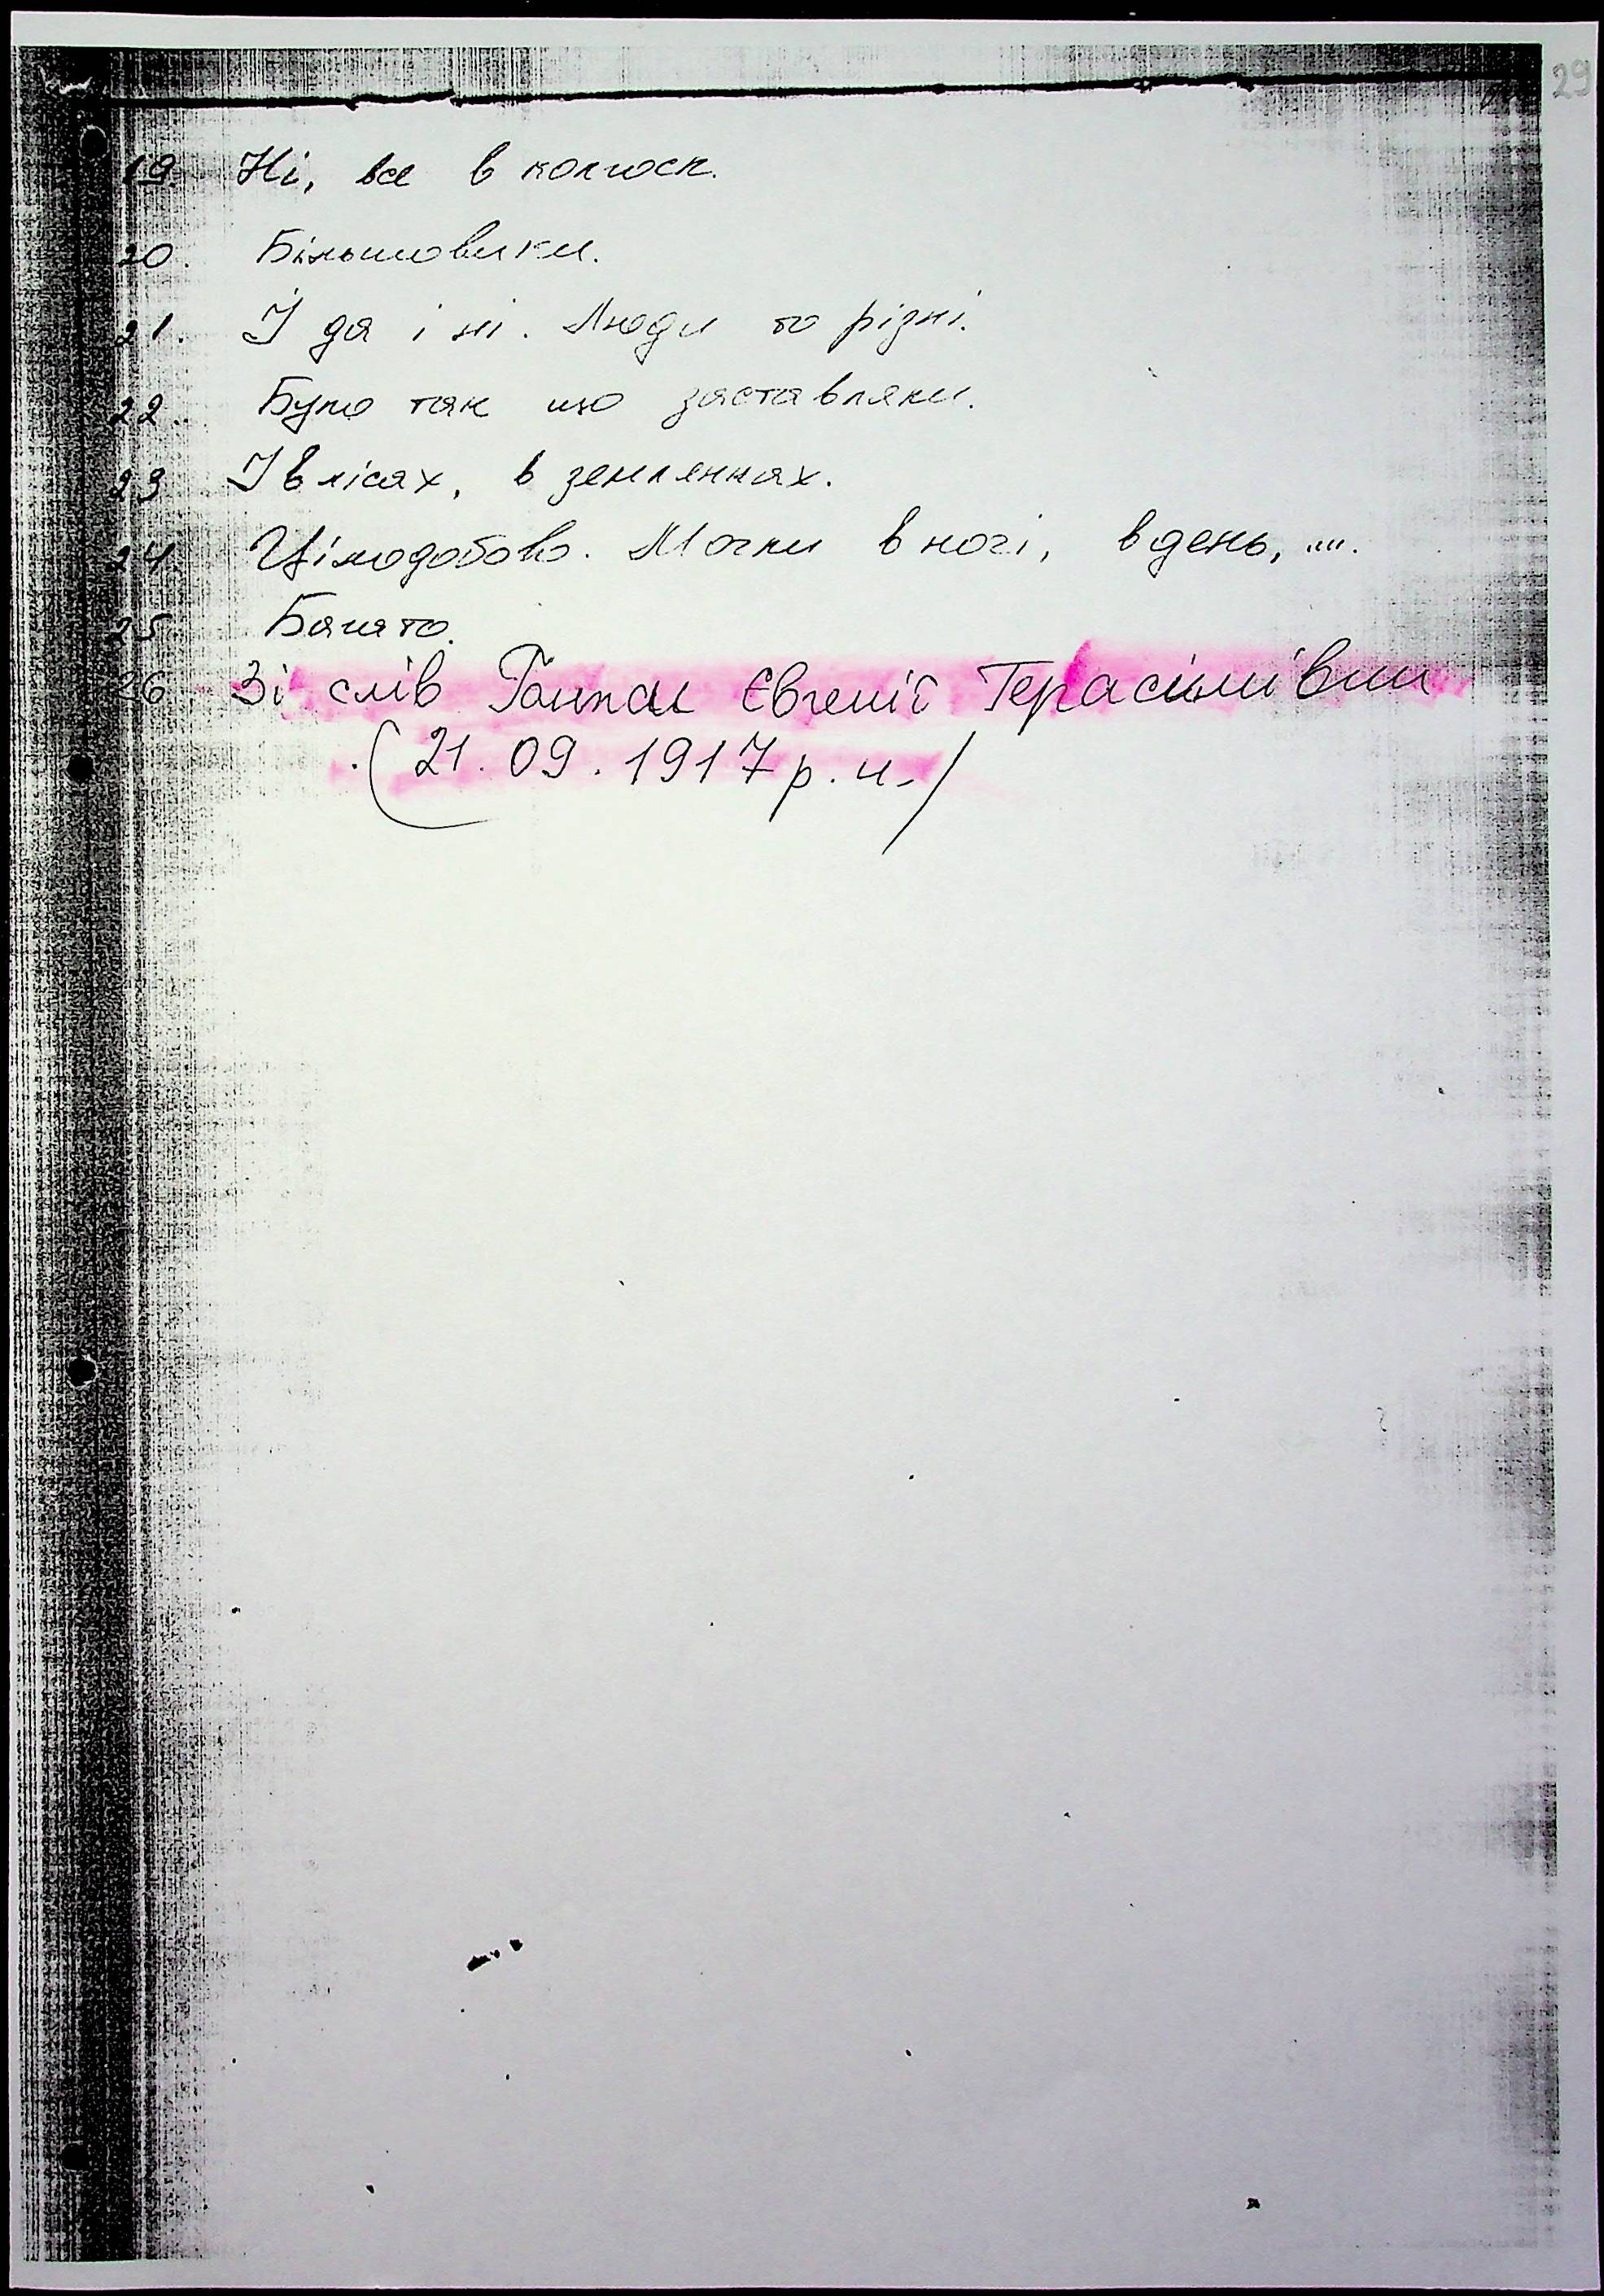 29
19. Ні, все в колгосп.
20. Більшовики.
21. І да і ні. Люди то різні.
22. Було так що заставляли.
23 І в лісах, в землянках.
24. Цілодобово. Могли в ночі, в день, ....
25. Багато.
26 Зі слів Євгенії Герасимівни
(21.09.1917 р.н.)